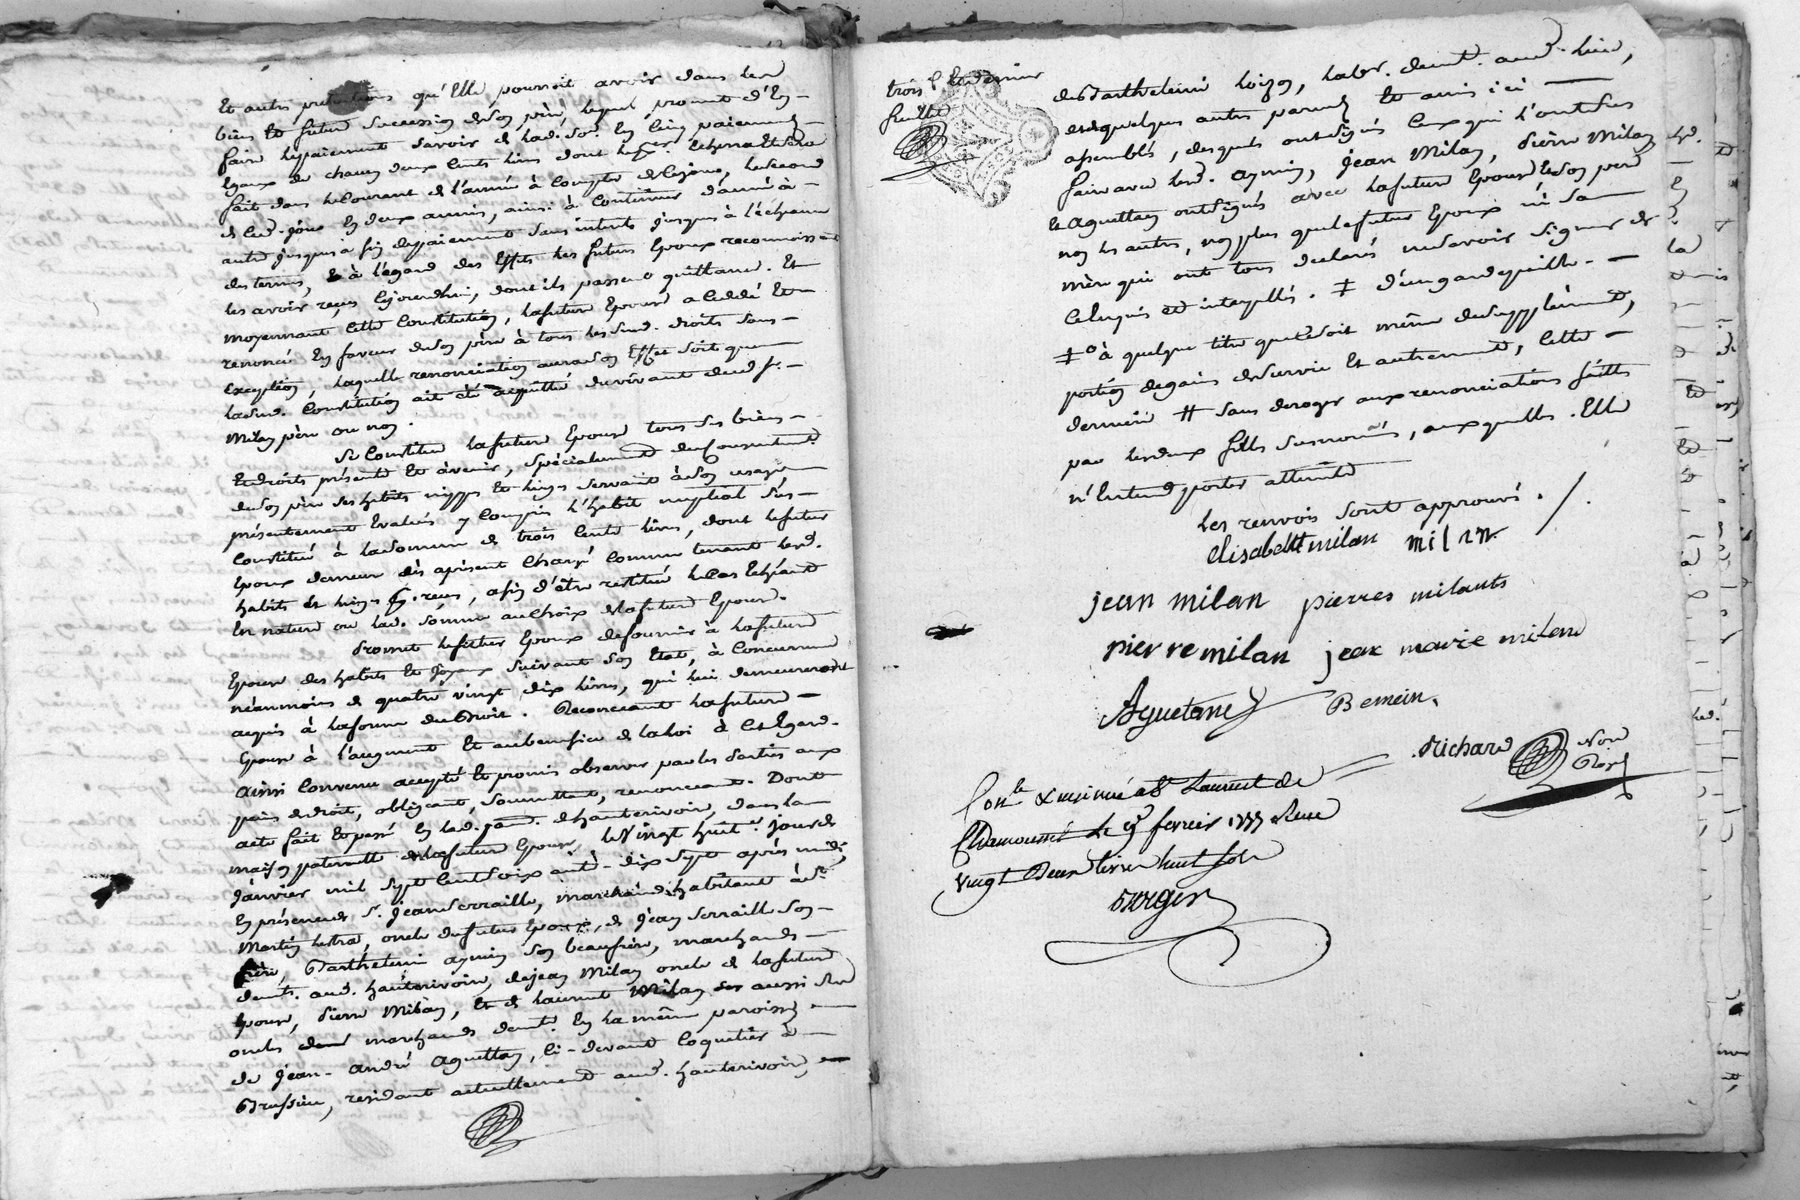 Et autres pretentions qu'Elle pourroit avoir dans les
biens et future succession de son père, lequel promet d'En
faire le paiement savoir de lad. so.e En cinq paiements
Egaux de chacun deux cents livres dont le p.er Echerra Et sera
fait dans le courant de l'année à compter de ce jour, le second
de ced. jour En deux années, ainsi à continuer d'année à
autre jusques à fin de paiement sans intérêts jusques à l'échéance
des termes, Et à l'égard des Effets les futurs Epoux reconnoissent
les avoir reçus cejourdhui, dont ils passent quittance. Et
moyennant cette Constitution, la future Epouse a cédé Et
renoncé En faveur de son père à tous les susd. droits sans
Exception, laquelle renonciation aura son Effet soit que
lad. Constitution ait été acquittée du vivant dud. S.r
Milan père ou non.
Se Constitue la future Epouse tous ses biens
Et droits présents Et à venir, spécialement du consentement
de son père ses habits nippes Et linges servant à son usage
présentement Evalués y compris l'habit nuptial sus
Constitué à la somme de trois cents livres, dont le futur
Epoux demeure dès à présent chargé comme tenant lesd.
habits Et linges p.r reçus, afin d'être restitués le cas Echéant
En nature ou lad. somme au choix de la future Epouse.
Promet le futur Epoux de fournir à la future
Epouse des habits Et joyaux suivant son Etat, à concurrence
néanmoins de quatre vingt dix livres, qui lui demeureront
acquis à la forme du Droit. Renonceant la future
Epouse à l'augment Et au benefice de la loi à cet Egard.
Ainsi convenu accepté Et promis observer par les parties aux
peines de droit, obligeant, soumettant, renonceant. Dont
acte fait Et passé En lad. par. d'hauterivoire, dans la
maison paternelle de la future Epouse, le Vingt huit.e jour de
janvier mil sept cent soixante-dix sept après midi,
En présence de S.r Jean Serraille, marchand habitant à S.t
Martin Lestra, oncle du futur Epoux, de Jean Serraille son
frère, Barthelemi aymin son beaufrère, marchands
demt. aud. hauterivoire, de jean Milan oncle de la future
Epouse, Pierre Milan, Et de laurent Milan aussi ses
oncles marchands demt. En la même paroisse
de Jean-André Aguettan, ci-devant coquetier à
Brussieu, residant actuellement aud. hauterivoire,
trois.e Et dernier
feuillet
de Barthelemi loizon, labor. demt. aud. lieu,
et de quelques autres parens Et amis ici
assemblés, desquels ont signés ceux qui l'ont su
faire avec lesd. aymin, Jean Milan, Pierre Milan
et Aguettan ont signés avec la future Epouse Et son père
non les autres, non plus que le futur Epoux ni sa
mère qui ont tous declarés ne savoir signer de
ce enquis et interpellés. ‡ d'une garde paille.
‡° à quelque titre que ce soit même de supplément,
portion de gains de survie Et autrement, cette
derniere # sans deroger aux renonciations faittes
par les deux filles susnomées, auxquelles Elle
n'Entend porter atteinte
les renvois sont approuvés.
elisabeth milan milan
jean milan pierres milants
pierre milan jean marie milan
Aguetant Bemein.
Richard Not.
Roy.
Con.lé & insinué a St Laurent de
Chamousset le 9 fevrier 1777 Reçu
vingt Deux livres huit sols
Borgerz